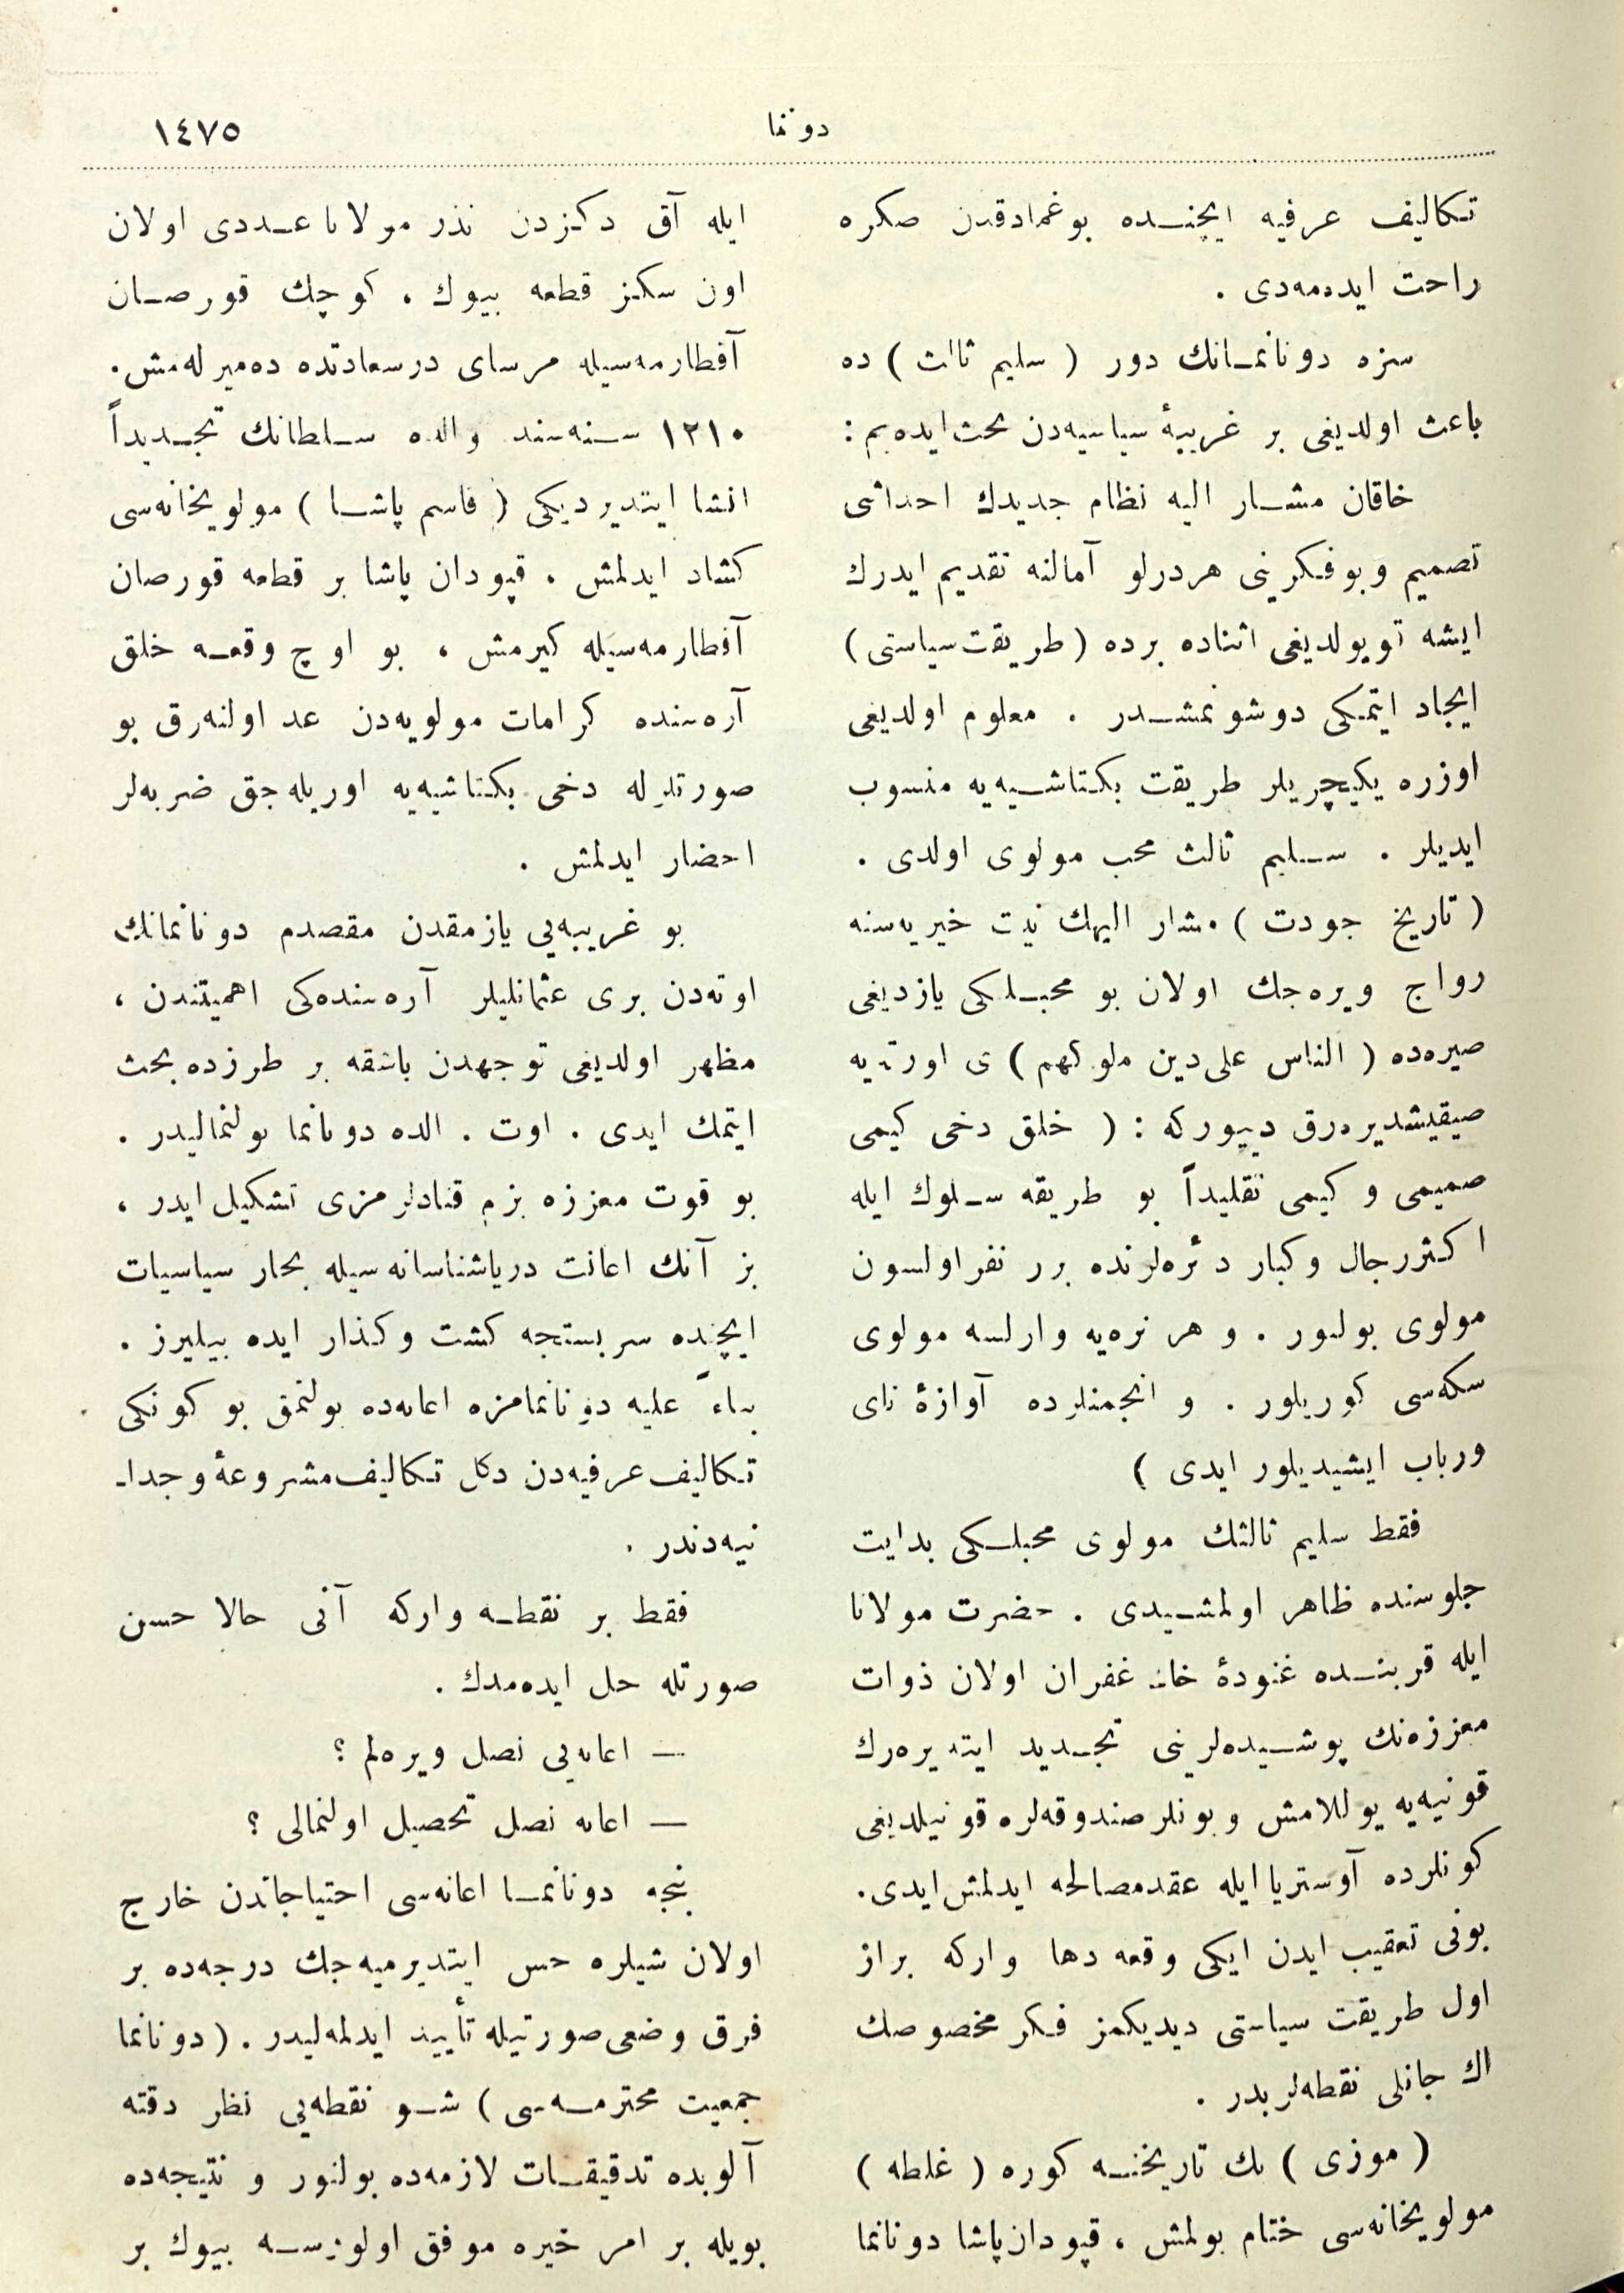 دونما
١٤٧٥
تكاليف عرفيه ايچنده بوغمادقدن صكره
راحت ايده‌مه‌دی .
سزه دونانمانك دور ( سليم ثالث ) ده
باعث اولديغی بر غريبهٔ سياسيه‌دن بحث ايده‌يم :
خاقان مشار اليه نظام جديدك احداثنی
تصميم و بو فكرينی هردرلو آمالنه تقديم ايدرك
ايشه قويولديغی اثناده برده ( طريقت سياستی )
ايجاد ايتمكی دوشونمشدر . معلوم اولديغی
اوزره يكيچريلر طريقت بكتاشيه‌يه منسوب
ايديلر . سليم ثالث محب مولوی اولدی .
( تاريخ جودت ) مشار اليهك نيت خيريه‌سنه
رواج ويره‌جك اولان بو محبلكی يازديغی
صيره‌ده ( الناس علی دين ملوكهم ) ی اورته‌يه
صيقيشديره‌رق دييوركه : ( خلق دخی كيمی
صميمی و كيمی تقليداً بو طريقه سلوك ايله
اكثر رجال و كبار دئره‌لرنده برر نفر اولسون
مولوی بولنور . و هر نره‌يه وارلسه مولوی
سكه‌سی كوريلور . و انجمنلرده آوازهٔ نای
و رباب ايشيديلور ايدی )
فقط سليم ثالثك مولوی محبلكی بدايت
جلوسنده ظاهر اولمشيدی . حضرت مولانا
ايله قربنده غنودهٔ خانهٔ غفران اولان ذوات
معززه‌نك پوشيده‌لرينی تجديد ايتديره‌رك
قونيه‌يه يوللامش و بونلر صندوقه‌لره قونيلديغی
كونلرده آوستريا ايله عقد مصالحه ايدلمش ايدی .
بونی تعقيب ايدن ايكی وقعه دها واركه براز
اول طريقت سياستی ديديكمز فكر مخصوصك
اك جانلی نقطه‌لريدر .
( موزی ) بك تاريخنه كوره ( غلطه )
مولويخانه‌سی ختام بولمش ، قپودان پاشا دونانما
ايله آق دكزدن نذر مولانا عددی اولان
اون سكز قطعه بيوك ، كوچك قورصان
آقطارمه‌سيله مرسای درسعادتده ده‌ميرله‌مش .
١٢١٠ سنه‌سند والده سلطانك تجديداً
انشا ايتديرديكی ( قاسم پاشا ) مولويخانه‌سی
كشاد ايدلمش . قپودان پاشا بر قطعه قورصان
آقطارمه‌سيله كيرمش ، بو اوچ وقعه خلق
آره‌سنده كرامات مولويه‌دن عد اولنه‌رق بو
صورتله دخی بكتاشيه‌يه اوريله‌جق ضربه‌لر
احضار ايدلمش .
بو غريبه‌يی يازمقدن مقصدم دونانمانك
اوته‌دن بری عثمانليلر آره‌سنده‌كی اهميتندن ،
مظهر اولديغی توجهدن باشقه بر طرزده بحث
ايتمك ايدی . اوت . الده دونانما بولنمالیدر .
بو قوت معززه بزم قنادلرمزی تشكيل ايدر ،
بز آنك اعانت درياشناسانه‌سيله بحار سياسيات
ايچنده سربستجه كشت و كذار ايده بيليرز .
بناءً عليه دونانمامزه اعانه‌ده بولنمق بو كونكی
تكاليف عرفيه‌دن دكل تكاليف مشروعهٔ وجدا-
نيه‌دندر .
فقط بر نقطه واركه آنی حالا حسن
صورتله حل ايده‌مدك .
— اعانه‌يی نصل ويره‌لم ؟
— اعانه نصل تحصيل اولنمالی ؟
بنجه دونانما اعانه‌سی احتياجاتدن خارج
اولان شيلره حس ايتديرميه‌جك درجه‌ده بر
فرق وضعی صورتيله تأييد ايدلمه‌ليدر . ( دونانما
جمعيت محترمه‌سی ) شو نقطه‌يی نظر دقته
آلوبده تدقيقات لازمه‌ده بولنور و نتيجه‌ده
بويله بر امر خيره موفق اولورسه بيوك بر